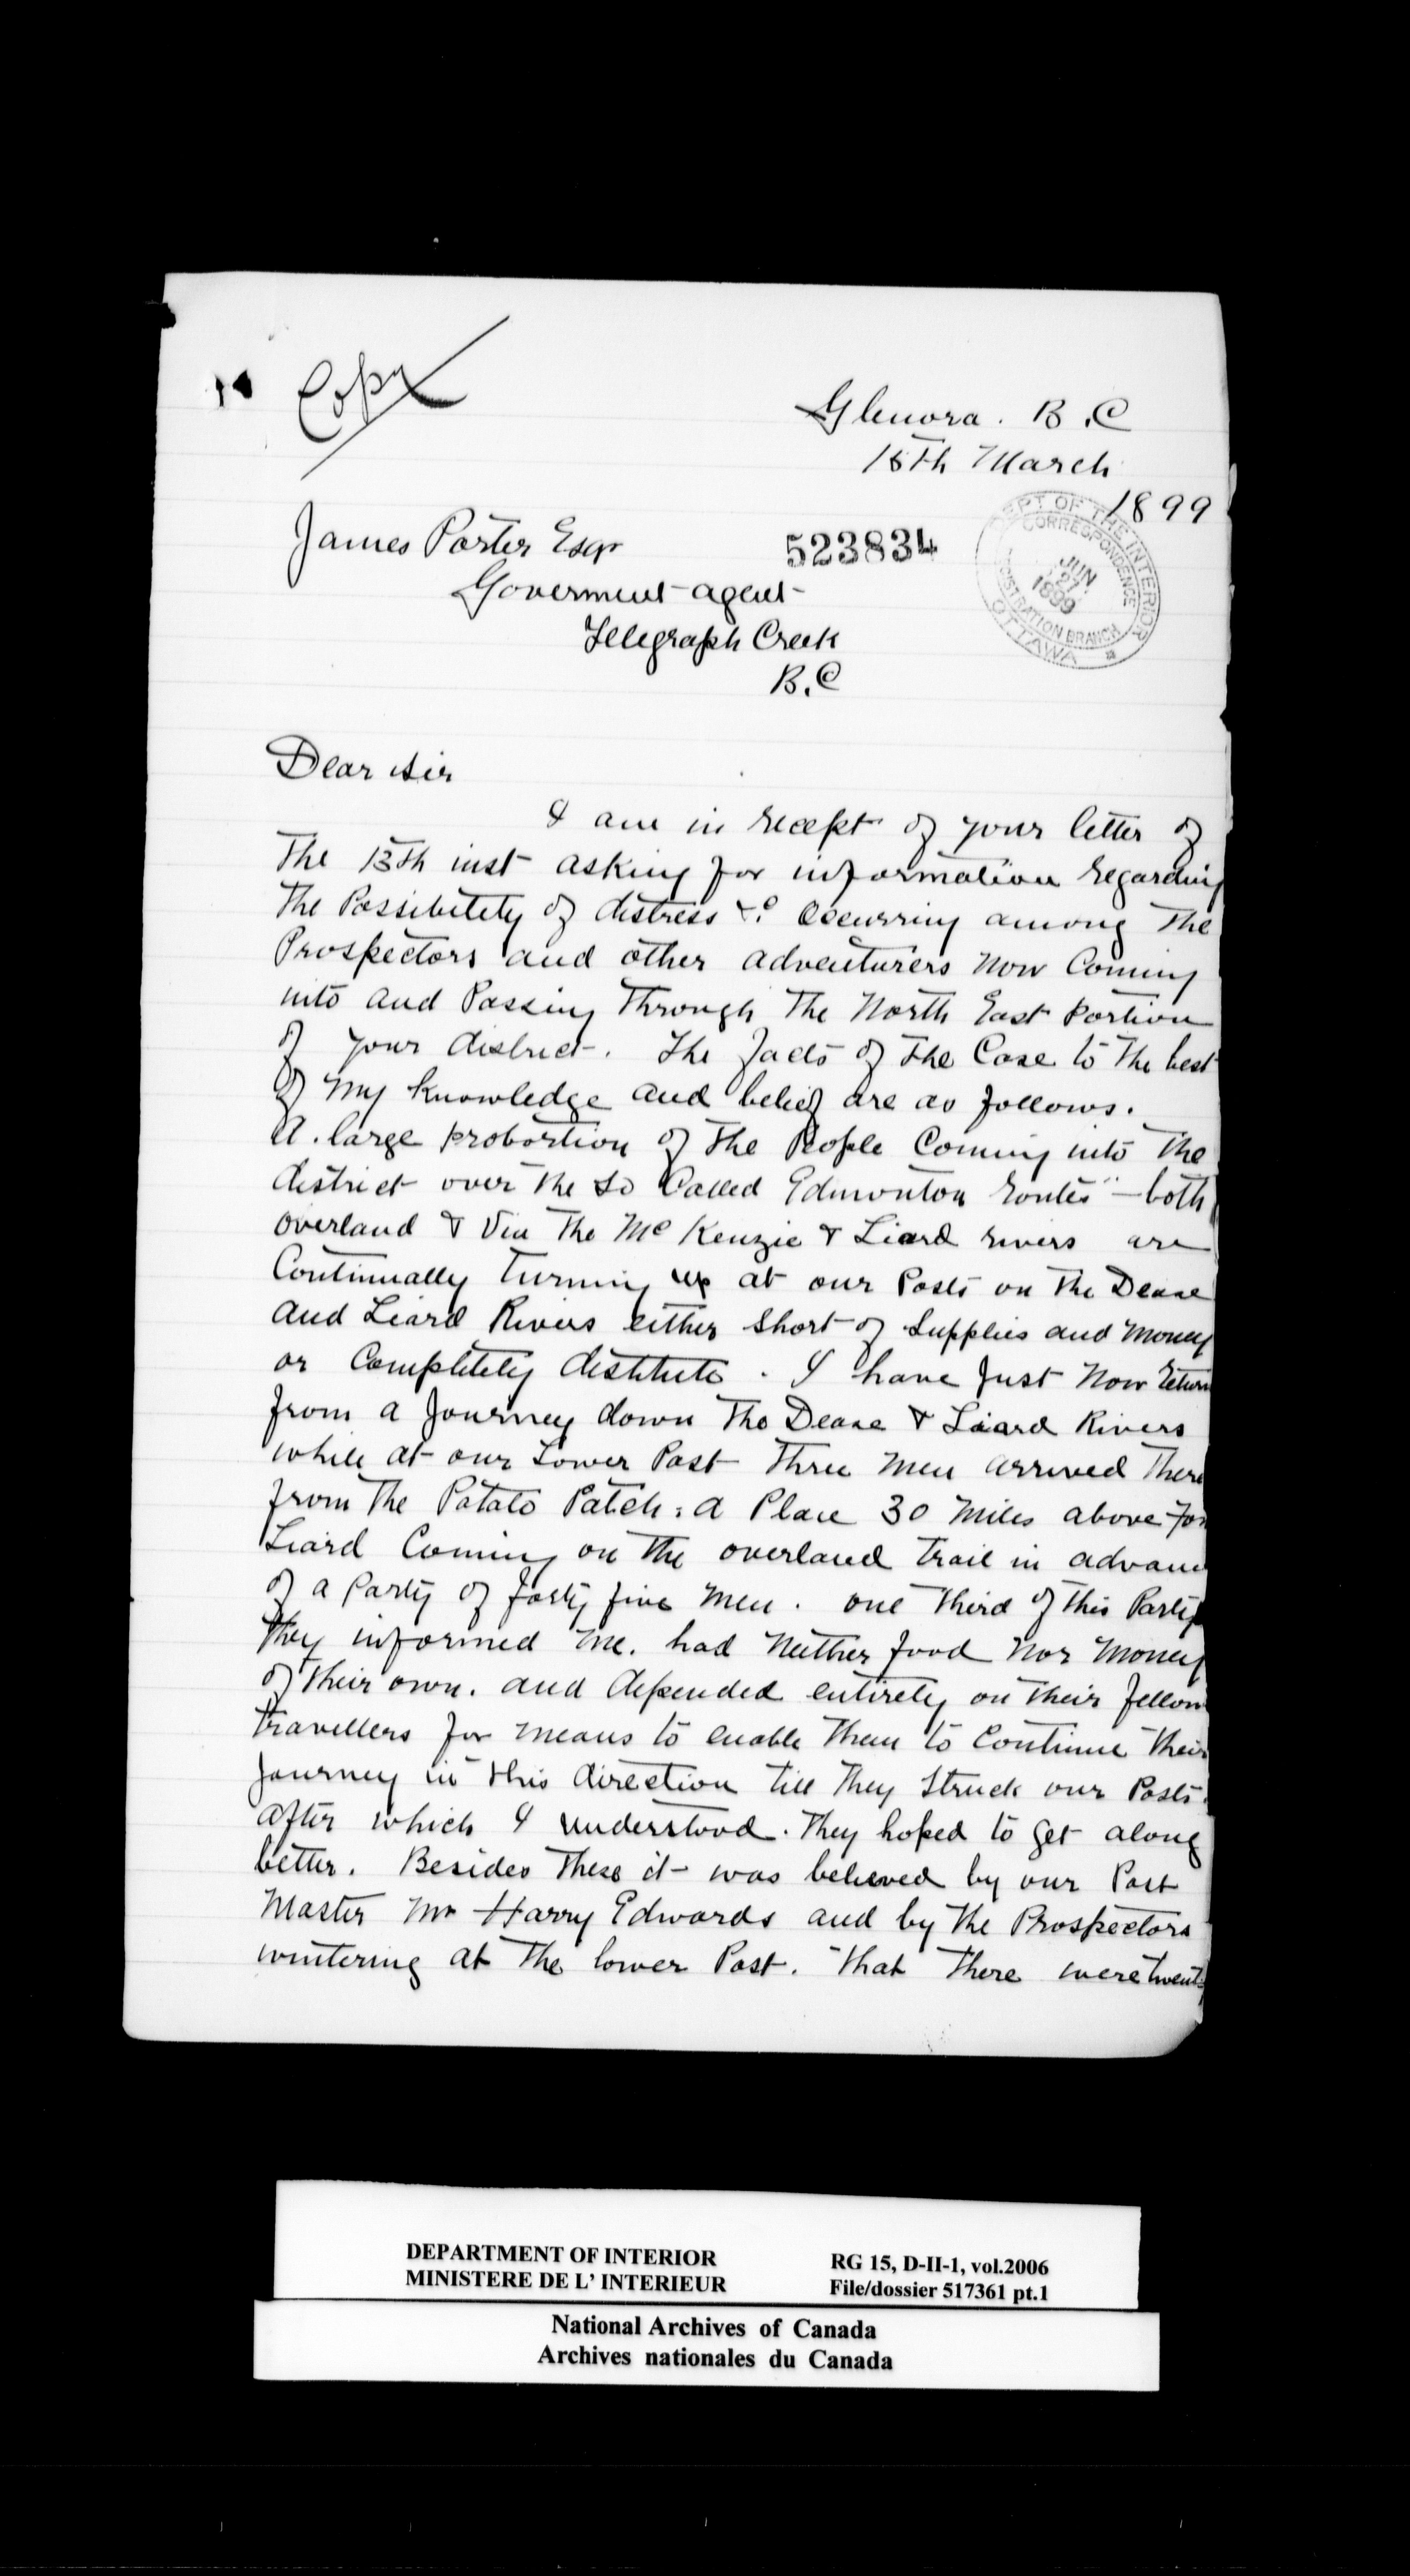 Copy
Glenora. B.C
18th March
1899
DEPT OF THE INTERIOR
CORRESPONDENCE
JUN
27
1899
REGISTRATION BRANCH
OTTAWA
523834
James Porter Esqr
Goverment agent
Telegraph Creek
B.C
Dear Sir
I am in receipt of your letter of
the 15th inst asking for information regarding
the Possibility of distress &c occurring among the
Prospectors and other adventurers now Coming
into and Passing through the North East Portion
of your district. The facts of the Case to the best
of my knowledge and belief are as follows.
A. large probortion of the People Coming into the
district over the so Called Edmonton routes" - both
overland & Via the McKenzie & Liard rivers are
Continually turning up at our Posts on the Dease
and Liard Rivers either short of supplies and money
or Completely distitute. I have just now return
from a Journey down the Dease & Liard Rivers
while at our Lower Post three men arrived there
from the Potato Patch: a Place 30 miles above For
Liard Coming on the overland trail in advanc
of a Party of forty five men. one third of this Party
they informed me. had neither food nor money
of their own. and depended entirely on their fellow
travellers for means to enable them to Continue their
Journey in this direction till they struck our Posts.
after which I understood. they hoped to get along
better. Besides these it was believed by our Post
Master Mr Harry Edwards and by the Prospectors
wintering at the lower Post. that there were twenty
DEPARTMENT OF INTERIOR
MINISTERE DE L' INTERIEUR
RG 15, D-II-1, vol.2006
File/dossier 517361 pt.1
National Archives of Canada
Archives nationales du Canada